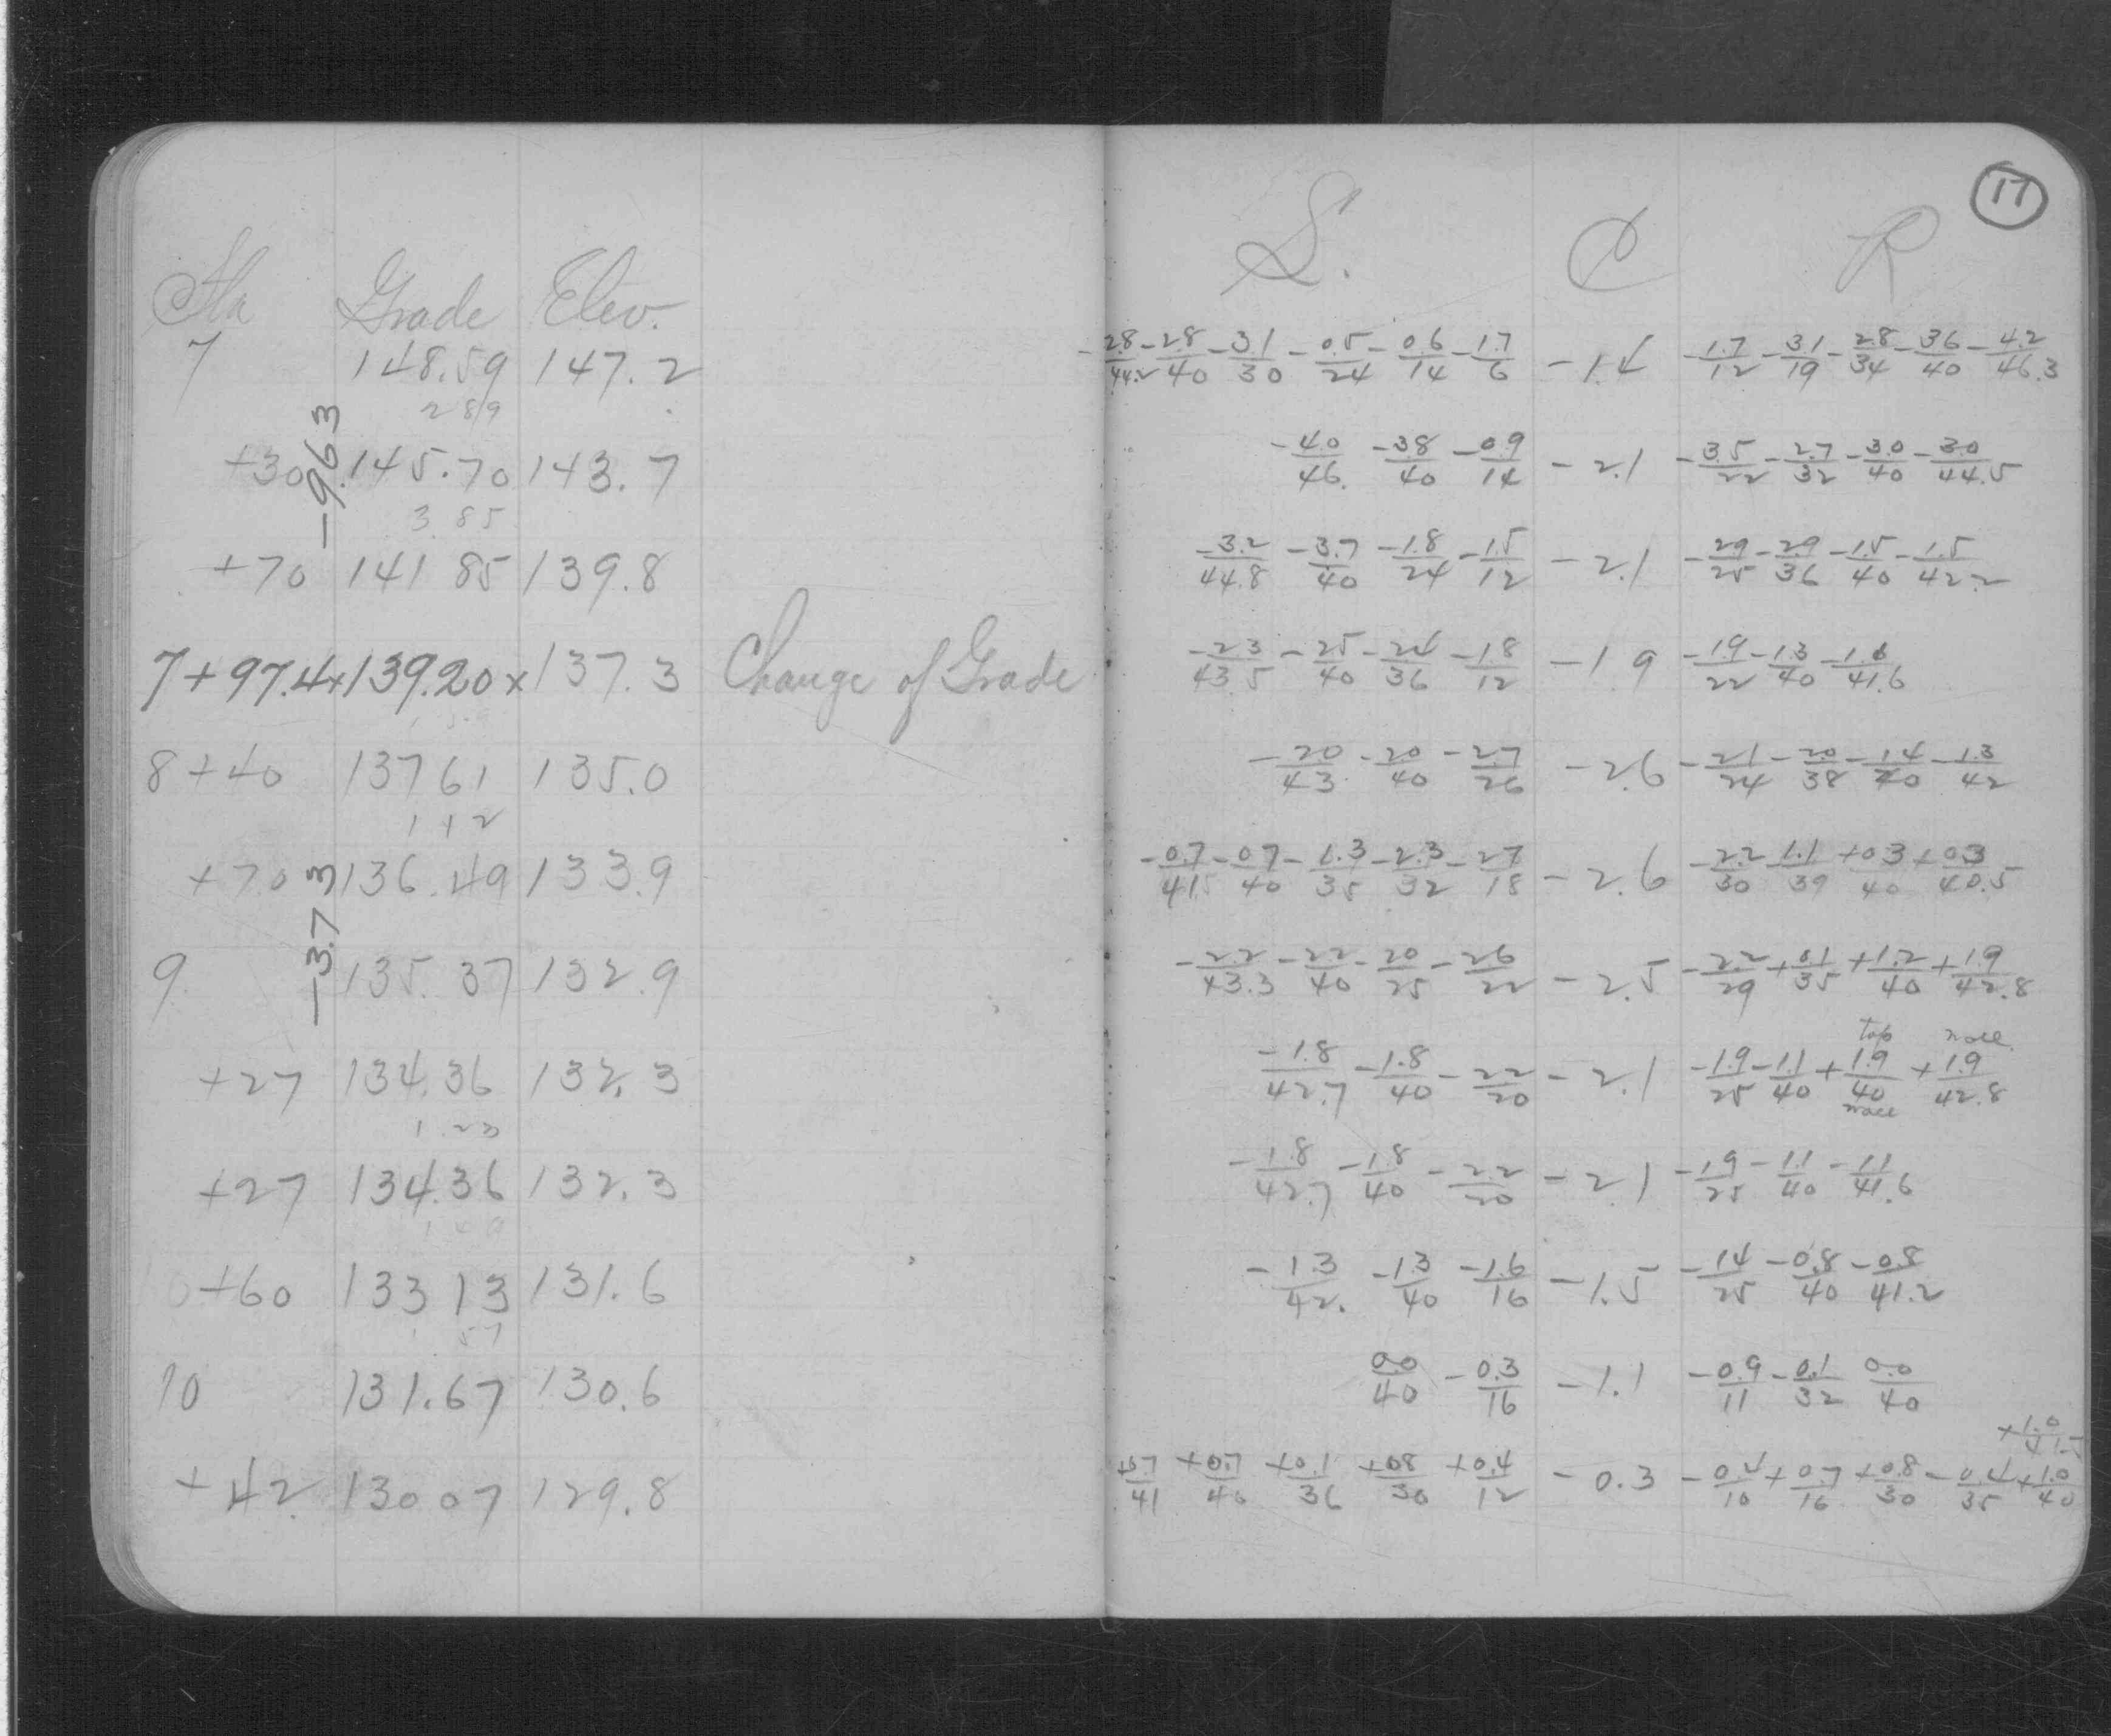 17
Sta Grade Elev. L. ₵ R
7 148.59 147.2 -2.8/44.2 -2.8/40 -3.1/30 -0.5/24 -0.6/14 -1.7/6 -1.4 -1.7/12 -3.1/19 -2.8/34 -3.6/40 -4.2/46.3
2 89
-9.63
+30 145.70 143.7 -4.0/46. -3.8/40 -0.9/14 -2.1 -3.5/22 -2.7/32 -3.0/40 -3.0/44.5
3 85
+70 141 85 139.8 -3.2/44.8 -3.7/40 -1.8/24 -1.5/12 -2.1 -2.9/25 -2.9/36 -1.5/40 -1.5/42.2
7+97.4 x 139.20 x 137.3 Change of Grade -2.3/43.5 -2.5/40 -2.4/36 -1.8/12 -1.9 -1.9/22 -1.3/40 -1.6/41.6
8+40 137 61 135.0 -2.0/43. -2.0/40 -2.7/26 -2.6 -2.1/24 -2.0/38 -1.4/40 -1.3/42
1 12
+70 136.49 133.9 -0.7/41.5 -0.7/40 -1.3/35 -2.3/32 -2.7/18 -2.6 -2.2/30 -1.1/39 +0.3/40 +0.3/40.5
-3.73
9. 135.37 132.9 -2.2/43.3 -2.2/40 -2.0/25 -2.6/22 -2.5 -2.2/29 +0.1/35 +1.2/40 +1.9/42.8
top
+27 134.36 132.3 -1.8/42.7 -1.8/40 -2.2/20 -2.1 -1.9/25 -1.1/40 +1.9/40 +1.9/42.8
1.23
+27 134.36 132.3 -1.8/42.7 -1.8/40 -2.2/20 -2.1 -1.9/25 -1.1/40 -1.1/41.6
+60 133 13 131.6 -1.3/42. -1.3/40 -1.6/16 -1.5 -1.4/25 -0.8/40 -0.8/41.2
10 131.67 130.6 0.0/40 -0.3/16 -1.1 -0.9/11 -0.1/32 0.0/40
+1.0/41.5
+42 130 07 129.8 +0.7/41 +0.7/40 +0.1/36 +0.8/30 +0.4/12 -0.3 -0.2/10 +0.7/16 +0.8/30 -0.4/35 +1.0/40